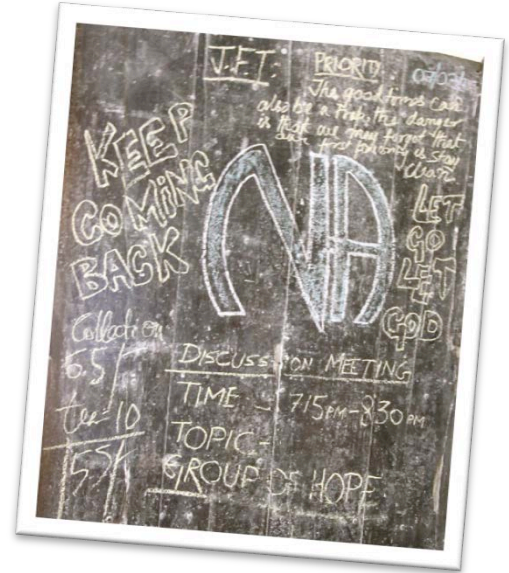 J.F.T. PRIORITY
The good times can
also be a trap, the danger
is that we may forget that
our first priority is stay
clean
KEEP
COMING
BACK
NA
LET
GO
LET
GOD
Collection
65/-
tea-10
55/-
DISCUSSION MEETING
TIME - 715PM-830PM
TOPIC-
GROUP OF HOPE